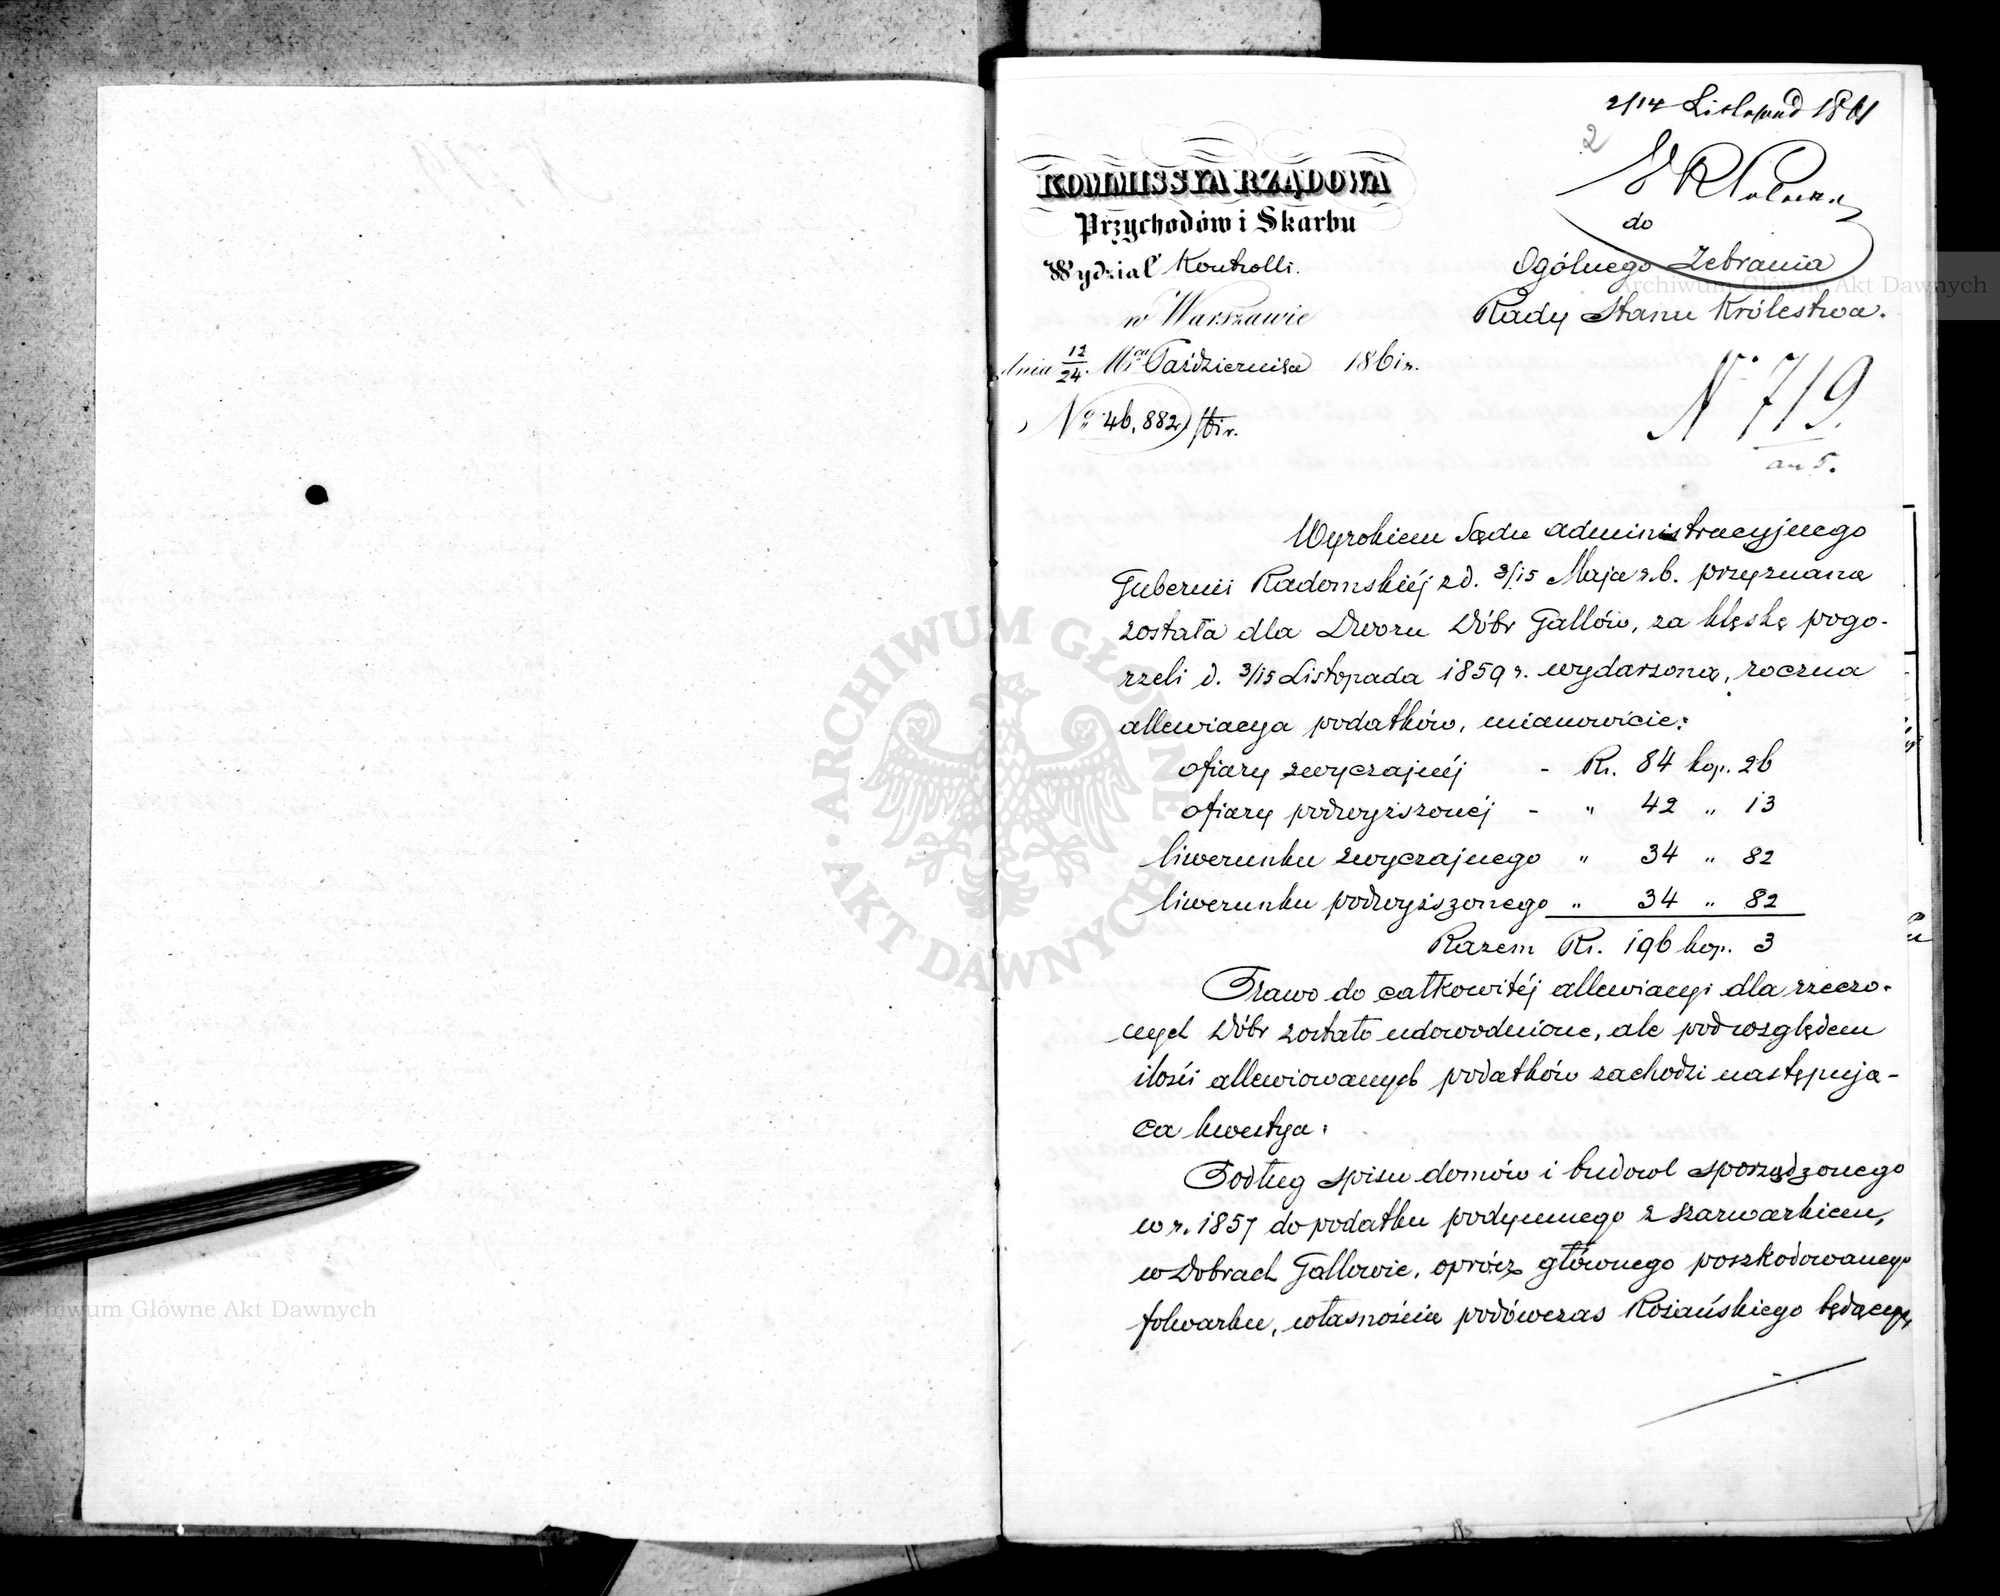 2/14 Listopad 1861
2
KOMMISSYA RZĄDOWA
Przychodów i Skarbu
Wydział Kontrolli.
w Warszawie
dnia 12/24 Mca Października 1861 r.
No 46,882
do
Ogólnego Zebrania
Rady Stanu Królestwa.
N 719.
Wyrokiem Sądu administracyjnego
Gubernii Radomskiéj z d. 3/15 Maja r.b. przyznaną
została dla Dworu Dóbr Gallów, za klęskę pogo-
rzeli d. 3/15 Listopada 1859 r. wydarzoną, roczna
allewiacya podatków, mianowicie:
ofiary zwyczajnéj - Rs. 84 kop. 26
ofiary podwyższonéj - " 42 " 13
liwerunku zwyczajnego " 34 " 82
liwerunku podwyższonego " 34 " 82
Razem Rs. 196 kop. 3
Prawo do całkowitéj allewiacyi dla rzeczo-
nych Dóbr zostało udowodnione, ale pod względem
ilości allewiowanych podatków zachodzi następują-
ca kwestya:
Podług spisu domów i budowl sporządzonego
w r. 1857 do podatku podymnego z szarwarkiem,
w Dobrach Gallowie, oprócz głównego poszkodowanego
folwarku, własnością podówczas Rożańskiego będącego,
ARCHIWUM GŁÓWNE AKT DAWNYCH
Archiwum Główne Akt Dawnych
Archiwum Główne Akt Dawnych